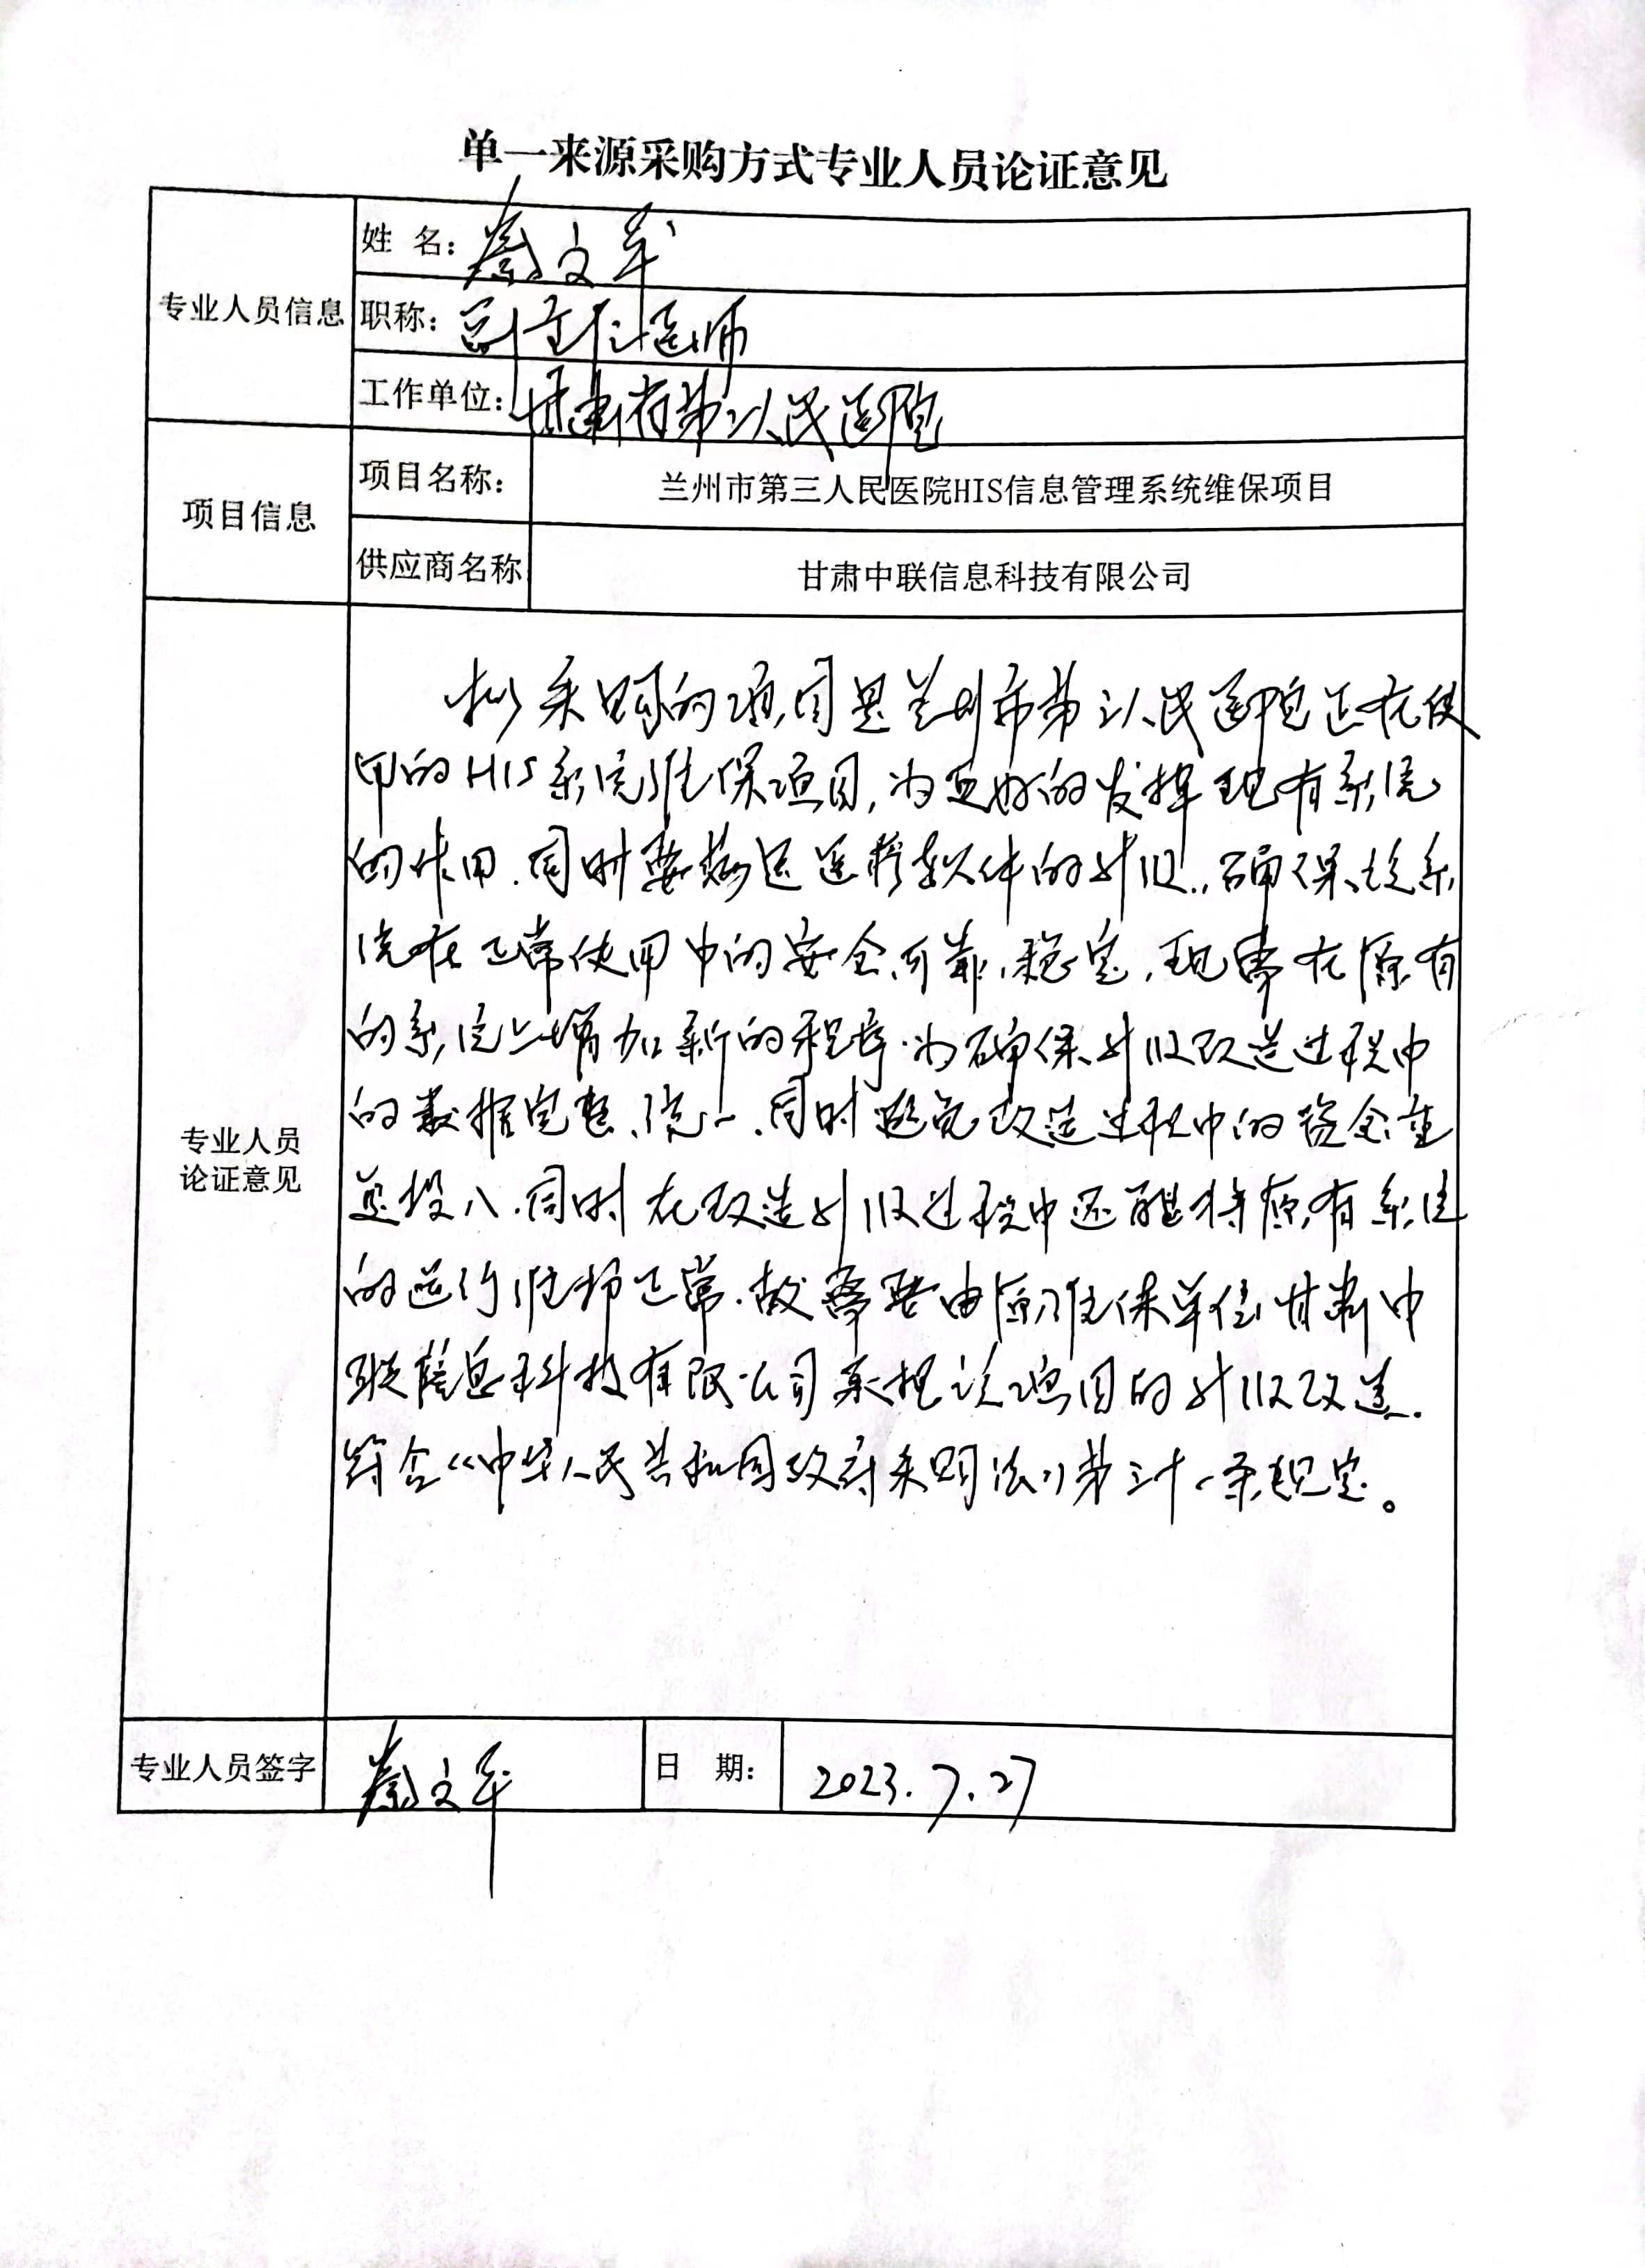 单一来源采购方式专业人员论证意见
专业人员信息
姓 名：蔡文军
职称：副主任医师
工作单位：甘肃省第二人民医院
项目信息
项目名称：
兰州市第三人民医院HIS信息管理系统维保项目
供应商名称
甘肃中联信息科技有限公司
专业人员
论证意见
拟采购的项目是兰州市第三人民医院正在使
用的HIS系统维保项目，为更好的发挥现有系统
的作用．同时要满足医疗软件的升级．，确保该系
统在正常使用中的安全、可靠、稳定．现需在原有
的系统上增加新的程序．为确保升级改造过程中
的数据完整、统一．同时避免改造过程中的资金重
复投入．同时在改造升级过程中还能将原有系统
的运行维护正常．故需要由原维保单位甘肃中
联信息科技有限公司承担该项目的升级改造．
符合《中华人民共和国政府采购法》第三十一条规定。
专业人员签字
蔡文军
日 期：
2023.7.27